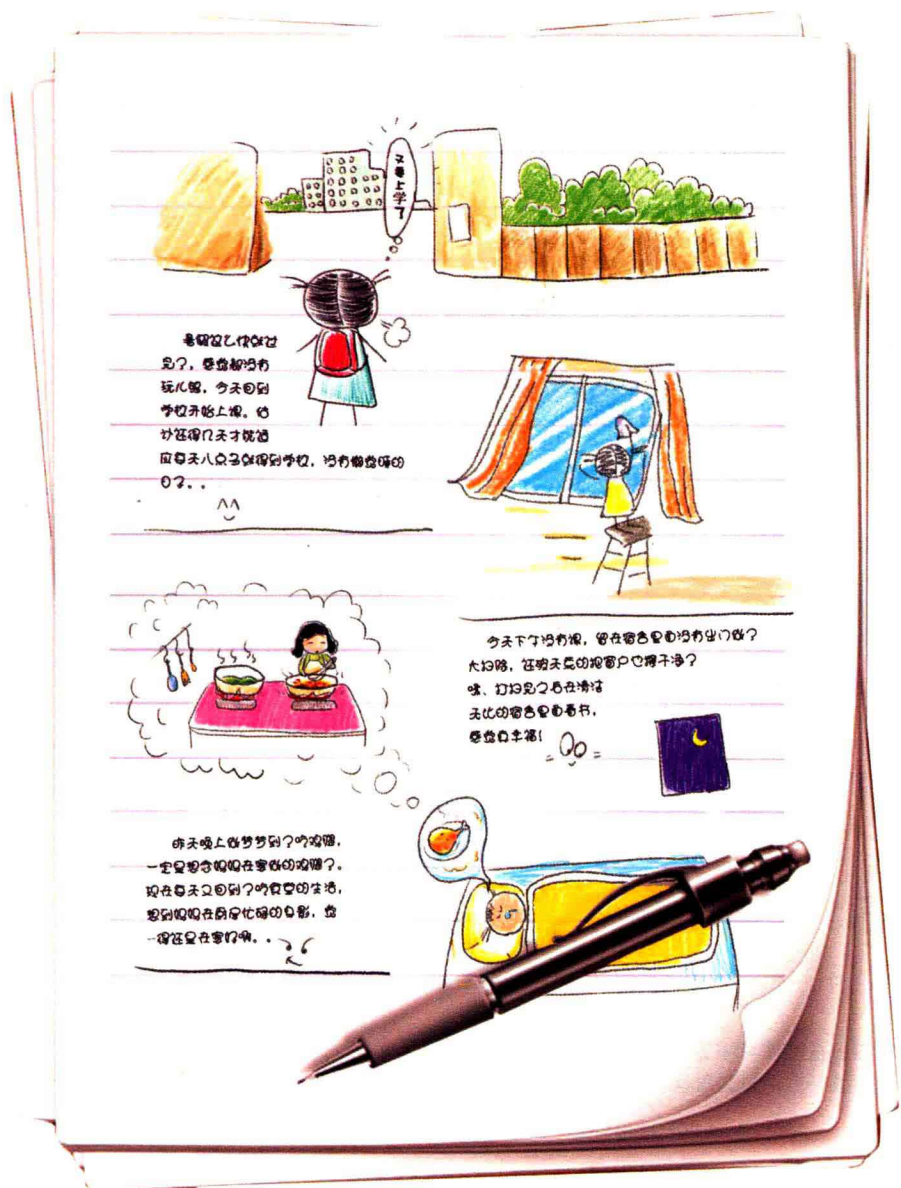 又要上学了
暑假这么快就过
完了，感觉都没有
玩儿够，今天回到
学校开始上课。估
计还得几天才能适
应每天八点多就得到学校，没有懒觉睡的
日子。。
今天下午没有课，留在宿舍里面没有出门做了
大扫除，还破天荒的把窗户也擦干净了
哇、打扫完之后在清洁
无比的宿舍里面看书，
感觉真幸福！
昨天晚上做梦梦到了吃鸡腿，
一定是想念妈妈在家做的鸡腿了。
现在每天又回到了吃食堂的生活，
想到妈妈在厨房忙碌的身影，觉
得还是在家好啊。。